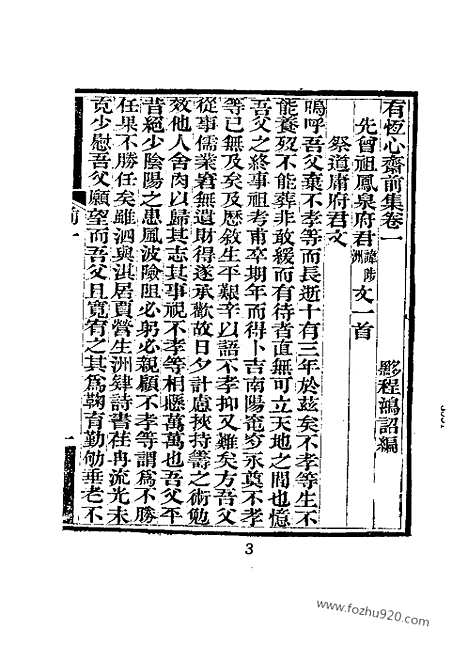 有恆心齋前集卷一
黟程鴻詔編
先曾祖鳳泉府君諱步洲文一首
祭道南府君文
嗚呼吾父棄不孝等而長逝十有三年於茲矣不孝等生不
能養歿不能葬非敢緩而有待者直無可立天地之間也憶
吾父之終事祖考甫卒期年而得卜吉南陽窀穸永奠不孝
等已無及矣及歷敘生平艱辛以語不孝抑又難矣方吾父
從事儒業窘無遺財得遂承歡故日夕計慮挾持籌之術勉
效他人舍肉以歸其志其事視不孝等相懸萬萬也吾父平
昔絕少陰陽之患風波險阻必躬必親顧不孝等謂爲不勝
任果不勝任矣雖泗與淇居賈營生洲肄詩書荏冉流光未
克少慰吾父願望而吾父且竟有之其爲鞠育勤劬垂老不
前一
一
3
www.fozhu920.com